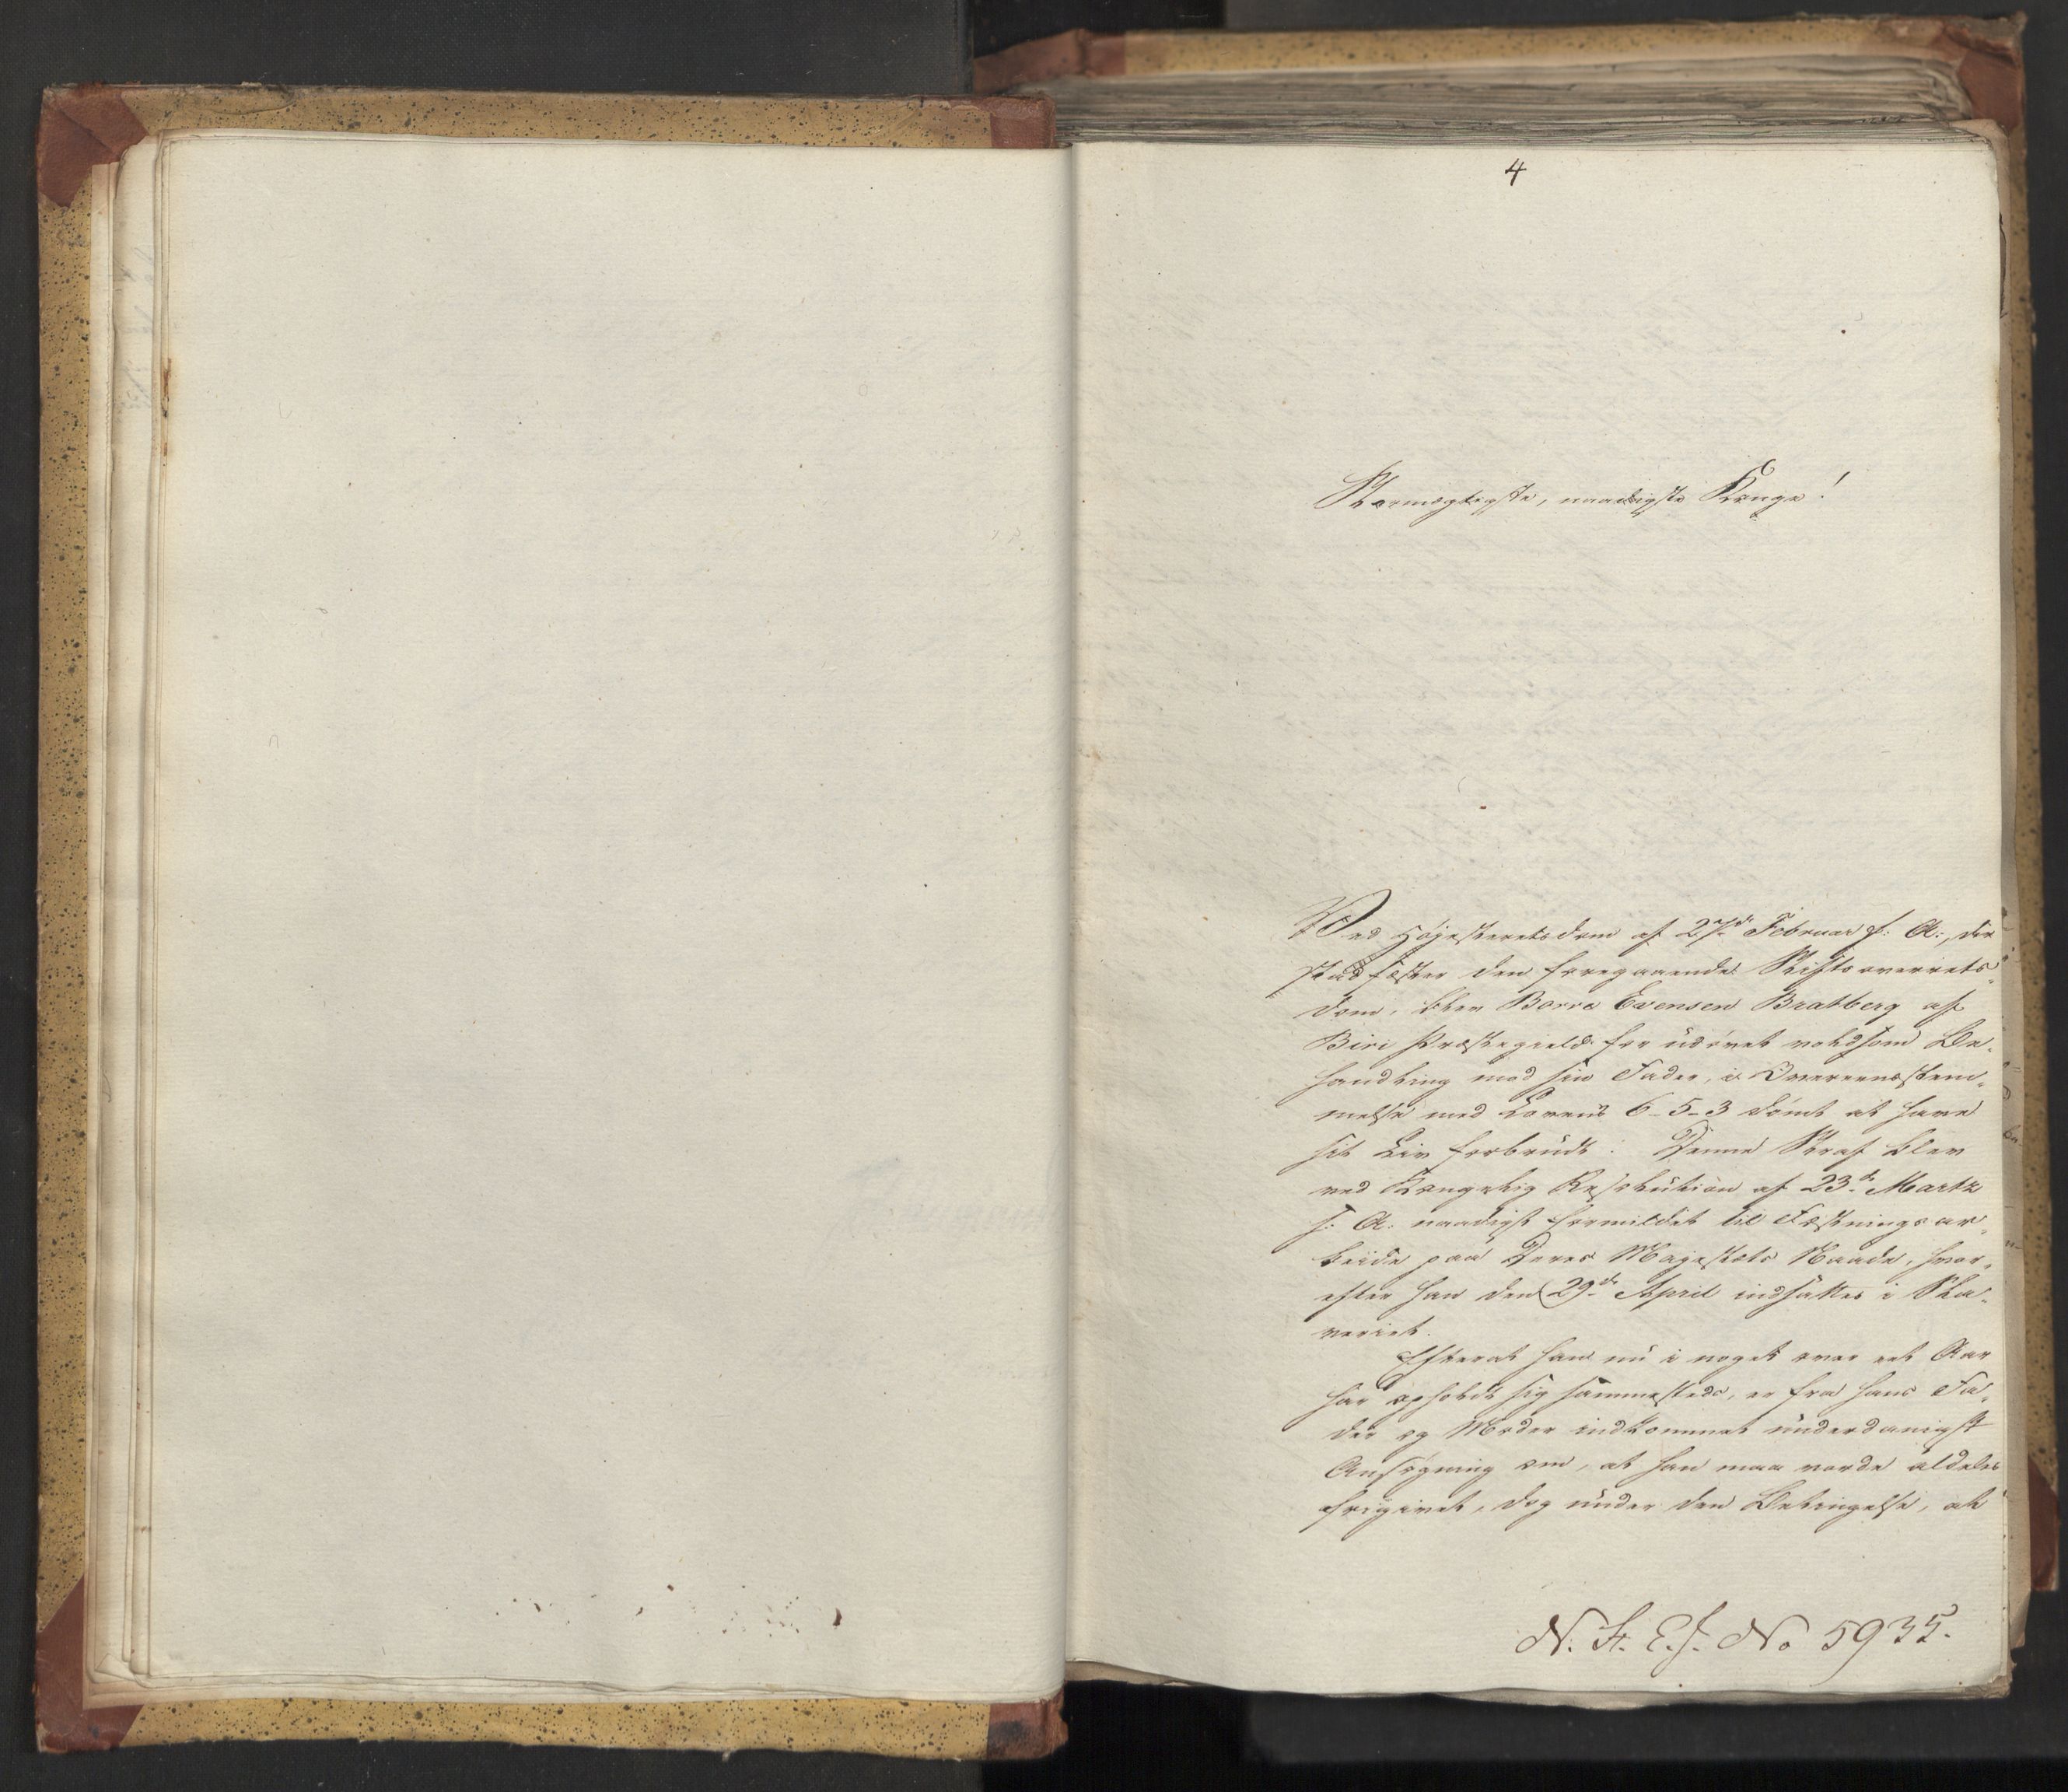 4
Stormægtigste, naadigste Konge!
Ved Høiesteretsdom af 27de Februar f: A:, der
stadfæster den foregaaende Stiftsoverrets-
dom, blev Borre Evensen Bratberg af
Biri Præstegield for udøvet voldsom Be-
handling mod sin Fader, i Overeensstem-
melse med Lovens 6-5-3 dømt at have
sit Liv forbrudt. Denne Straf blev
ved Kongelig Resolution af 23de Martz
f: A: naadigst formildet til Fæstningsar-
beide paa Deres Majestæts Naade, hvor-
efter han den 29de April indsattes i Sla-
veriet.
Efterat han nu i noget over eet Aar
har opholdt sig sammesteds, er fra hans Fa-
der og Moder indkommet underdanigst
Ansøgning om, at han maa vorde aldeles
frigivet, dog under den Betingelse, at
N. St. E. J. No 5935.